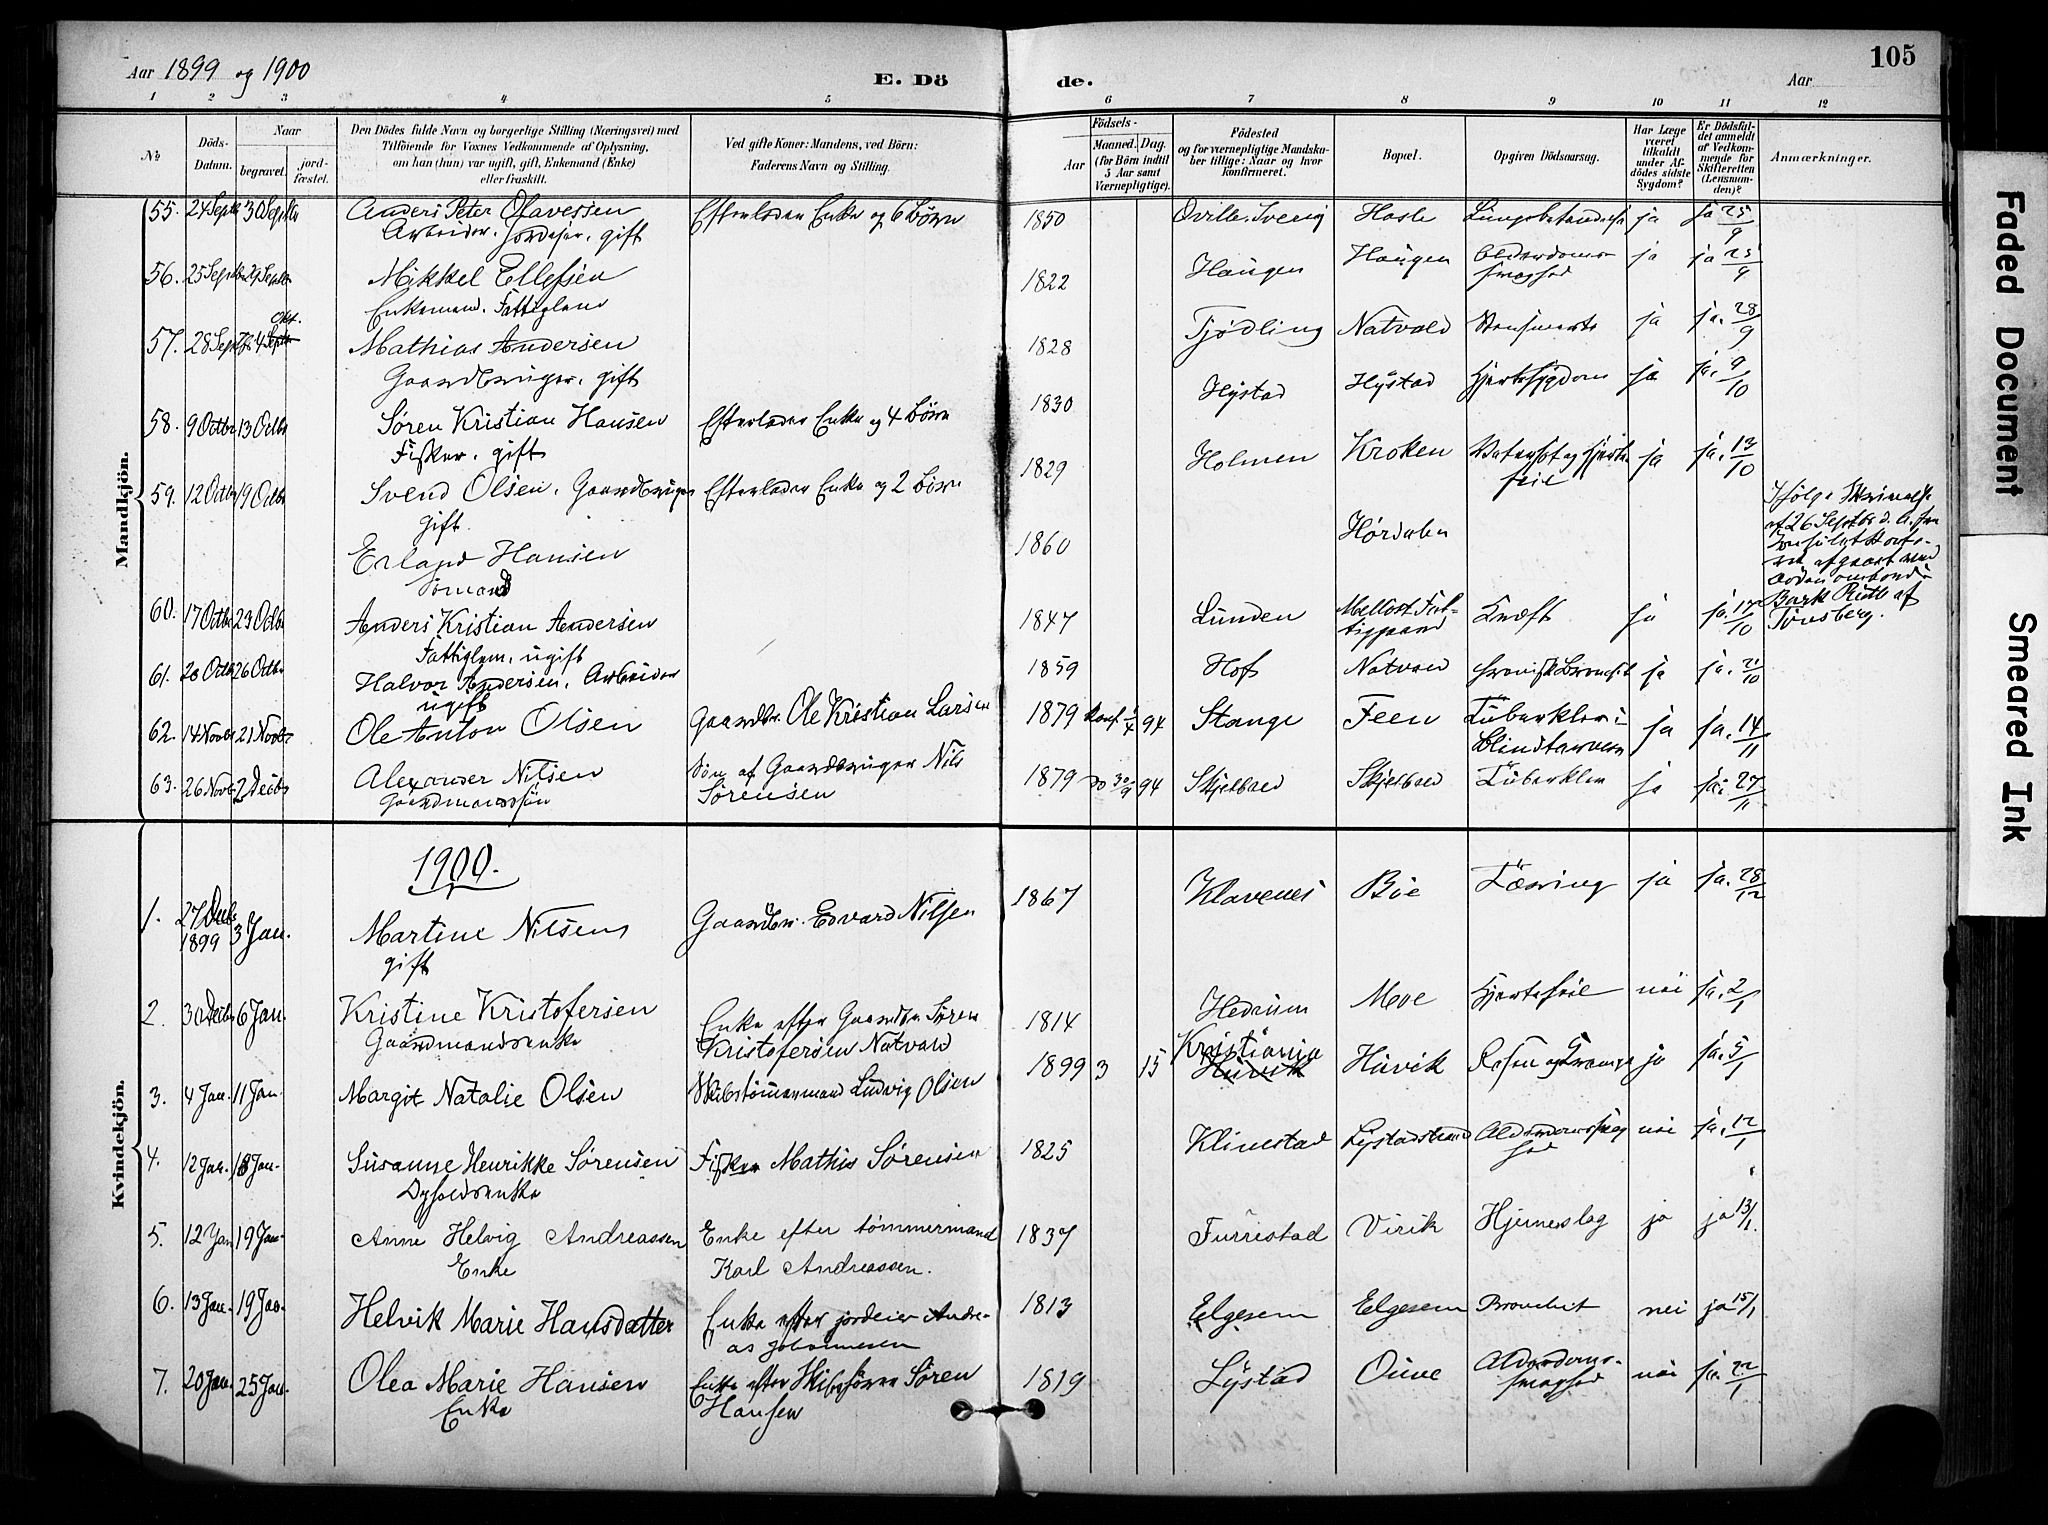 Aar 1899 og 1900
E. Dö
de.
Aar
105
1 2 3 4 5 6 7 8 9 10 11 12
No
Döds-
Datum.
Naar
begravet.
jord-
fæstet.
Den Dödes fulde Navn og borgerlige Stilling (Næringsvei) med
Tilföiende for Voxnes Vedkommende af Oplysning,
om han (hun) var ugift, gift, Enkemand (Enke)
eller fraskilt.
Ved gifte Koner: Mandens, ved Börn:
Faderens Navn og Stilling.
Födsels-
Aar
Maaned. Dag.
(for Börn indtil
5 Aar samt
Værnepligtige).
Födested
og for værnepligtige Mandska-
ber tillige: Naar og hvor
konfirmeret.
Bopæl.
Opgiven Dödsaarsag.
Har Læge
været
tilkaldt
under Af-
dödes sidste
Sygdom?
Er Dödsfal-
det anmeldt
af Vedkom-
mende for
Skifteretten
(Lensman-
den)?
Anmærkninger.
Mandkjön.
55. 24 Septbr 30 Septbr Anders Peter Olavessen Efterlader Enke og 6 Börn 1850 Hasle ja ja 25/9
Arbeider, Jordeier, gift
56. 25 Septbr 29 Septbr Mikkel Ellefsen 1822 Haugen Haugen Alderdoms- ja ja 25/9
svaghed
Enkemand. Fattiglem
57. 28 Septbr 4 Okt. Mathias Andersen 1828 Tjødling Natvald ja ja. 28/9
Gaardbruger, gift
58. 9 Octbr 13 Octbr Søren Kristian Hansen Efterlader Enke og 4 Börn 1830 Hystad Hystad Hjertesygdom ja ja. 9/10
Fisker, gift
59. 12 Octbr 19 Octbr Svend Olsen, Gaardbruger Efterlader Enke og 2 Börn 1829 Holmen Kroken Vatersot og Hjerte ja ja. 13/10
feil
gift.
Erland Hansen 1860 Hørdalen
Sømand
Ifølge Skrivelse
af 26 Septbr d. A. fra
Bark Ruth af
Tønsberg.
60. 17 Octbr 23 Octbr Anders Kristian Andersen 1847 Lunden Mellost. Fat-
tiggaard Kræft ja ja. 17/10
Fattiglem, ugift
61. 20 Octbr 26 Octbr Halvor Andersen, Arbeider 1859 Hof Natvald kronisk Bronchit ja ja. 21/10
ugift
62. 14 Novbr 21 Novbr Ole Anton Olsen Gaardbr. Ole Kristian Larsen 1879 Konf. 1/4 94 Stange Feen Tuberkler i ja ja. 14/11
blindtarmen
63. 26 Novbr 2 Decbr Alexander Nilsen Søn af Gaardbruger Nils 1879 do 30/9 94 Skjelbred Skjelbred Tuberkler ja ja. 27/11
Gaardmandssøn Sørensen
Kvindekjön.
1900.
1. 27 Decbr 1899 3 Jan. Martine Nilsen Gaardbr. Edvard Nilsen 1867 Klavenes Bøe Tæring ja ja. 28/12
gift
2. 30 Decbr 6 Jan. Kristine Kristofersen Enke efter Gaardbr. Søren 1814 Hedrum Moe Hjertefeil nei ja. 2/1
Gaardmandsenke Kristofersen Natvald
3. 4 Jan. 11 Jan. Margit Natalie Olsen Skibstømmermand Ludvig Olsen 1899 3 15 Kristiania Huvik Huvik Rosen og Krampe ja ja. 5/1
4. 12 Jan. 18 Jan. Susanne Henrikke Sørensen Fisker Mathis Sørensen 1825 Klinestad Lystadstrand Alderdomssvag- nei ja. 12/1
hed
5. 12 Jan 19 Jan. Anne Helvig Andreassen Enke efter tømmermand 1837 Furrestad Virik Hjerneslag ja ja 13/1
Enke Karl Andreassen.
6. 13 Jan. 19 Jan. Helvik Marie Hansdatter Enke efter jordeier Andre- 1813 Eelgesem Eelgesem Bronchit nei ja 15/1
as Johannesen
7. 20 Jan. 25 Jan. Olea Marie Hansen Enke efter Skibsfører Søren 1819 Lystad Ouve Alderdoms- nei ja. 22/1
svaghed
Enke Hansen
Faded Document
Smeared Ink